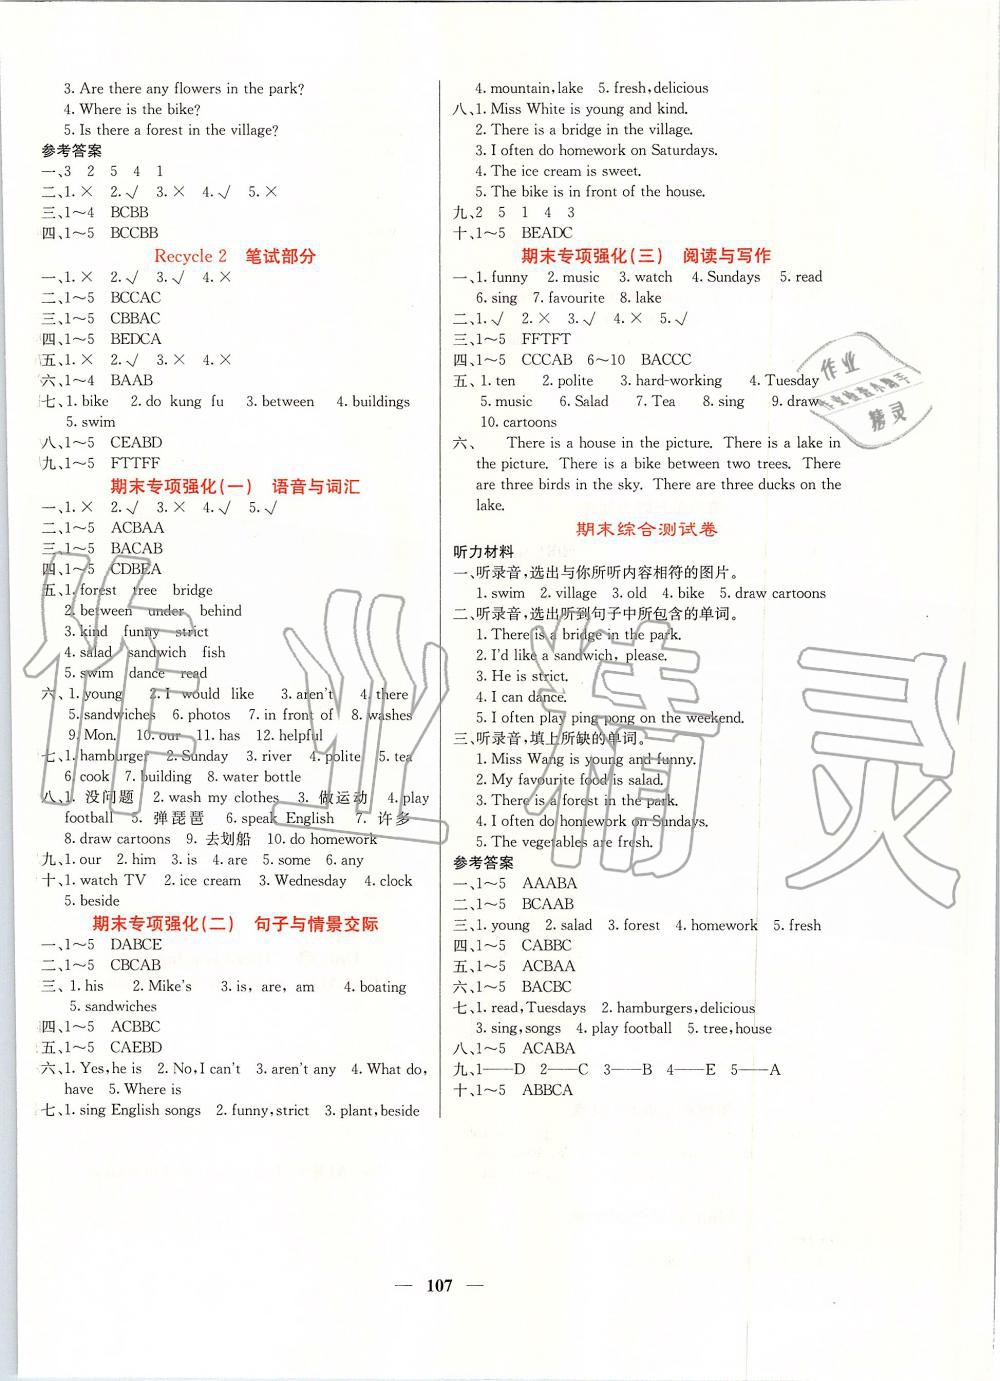 3. Are there any flowers in the park?
4. Where is the bike?
5. Is there a forest in the village?
参考答案
一、3 2 5 4 1
二、1. × 2. √ 3. × 4. √ 5. ×
三、1～4 BCBB
四、1～5 BCCBB
Recycle 2 笔试部分
一、1. × 2. √ 3. √ 4. ×
二、1～5 BCCAC
三、1～5 CBBAC
四、1～5 BEDCA
五、1. × 2. √ 3. × 4. × 5. √
六、1～4 BAAB
七、1. bike 2. do kung fu 3. between 4. buildings
5. swim
八、1～5 CEABD
九、1～5 FTTFF
期末专项强化(一) 语音与词汇
一、1. × 2. √ 3. × 4. √ 5. √
二、1～5 ACBAA
三、1～5 BACAB
四、1～5 CDBEA
五、1. forest tree bridge
2. between under behind
3. kind funny strict
4. salad sandwich fish
5. swim dance read
六、1. young 2. I would like 3. aren't 4. there
5. sandwiches 6. photos 7. in front of 8. washes
9. Mon. 10. our 11. has 12. helpful
七、1. hamburger 2. Sunday 3. river 4. polite 5. tea
6. cook 7. building 8. water bottle
八、1. 没问题 2. wash my clothes 3. 做运动 4. play
football 5. 弹琵琶 6. speak English 7. 许多
8. draw cartoons 9. 去划船 10. do homework
九、1. our 2. him 3. is 4. are 5. some 6. any
十、1. watch TV 2. ice cream 3. Wednesday 4. clock
5. beside
期末专项强化(二) 句子与情景交际
一、1～5 DABCE
二、1～5 CBCAB
三、1. his 2. Mike's 3. is, are, am 4. boating
5. sandwiches
四、1～5 ACBBC
五、1～5 CAEBD
六、1. Yes, he is 2. No, I can't 3. aren't any 4. What do,
have 5. Where is
七、1. sing English songs 2. funny, strict 3. plant, beside
4. mountain, lake 5. fresh, delicious
八、1. Miss White is young and kind.
2. There is a bridge in the village.
3. I often do homework on Saturdays.
4. The ice cream is sweet.
5. The bike is in front of the house.
九、2 5 1 4 3
十、1～5 BEADC
期末专项强化(三) 阅读与写作
一、1. funny 2. music 3. watch 4. Sundays 5. read
6. sing 7. favourite 8. lake
二、1. √ 2. × 3. √ 4. × 5. √
三、1～5 FFTFT
四、1～5 CCCAB 6～10 BACCC
五、1. ten 2. polite 3. hard-working 4. Tuesday
5. music 6. Salad 7. Tea 8. sing 9. draw
10. cartoons
六、 There is a house in the picture. There is a lake in
the picture. There is a bike between two trees. There
are three birds in the sky. There are three ducks on the
lake.
期末综合测试卷
听力材料
一、听录音，选出与你所听内容相符的图片。
1. swim 2. village 3. old 4. bike 5. draw cartoons
二、听录音，选出听到句子中所包含的单词。
1. There is a bridge in the park.
2. I'd like a sandwich, please.
3. He is strict.
4. I can dance.
5. I often play ping-pong on the weekend.
三、听录音，填上所缺的单词。
1. Miss Wang is young and funny.
2. My favourite food is salad.
3. There is a forest in the park.
4. I often do homework on Sundays.
5. The vegetables are fresh.
参考答案
一、1～5 AAABA
二、1～5 BCAAB
三、1. young 2. salad 3. forest 4. homework 5. fresh
四、1～5 CABBC
五、1～5 ACBAA
六、1～5 BACBC
七、1. read, Tuesdays 2. hamburgers, delicious
3. sing, songs 4. play football 5. tree, house
八、1～5 ACABA
九、1——D 2——C 3——B 4——E 5——A
十、1～5 ABBCA
— 107 —
作业精灵
作业
精灵